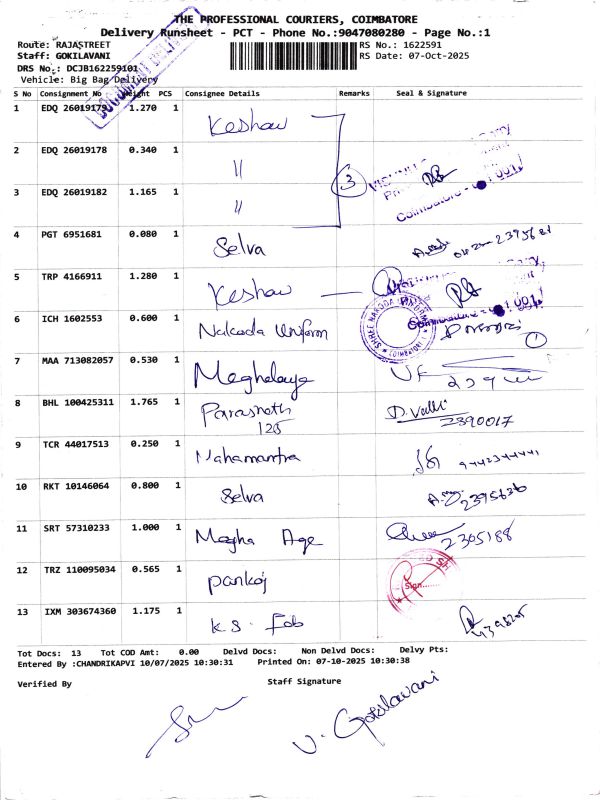 THE PROFESSIONAL COURIERS, COIMBATORE
Delivery Runsheet - PCT - Phone No.:9047080280 - Page No.:1
Route: RAJASTREET RS No.: 1622591
Staff: GOKILAVANI RS Date: 07-Oct-2025
DRS No.: DCJB162259101
Vehicle: Big Bag Delivery
S No Consignment No Weight PCS Consignee Details Remarks Seal & Signature
1 EDQ 26019179 1.270 1 Keshav
2 EDQ 26019178 0.340 1 〃 3
3 EDQ 26019182 1.165 1 〃 Coimbatore - 001
4 PGT 6951681 0.080 1 Selva
5 TRP 4166911 1.280 1 Keshav
6 ICH 1602553 0.600 1 Nakoda Uniform 1
7 MAA 713082057 0.530 1 Meghalaya
8 BHL 100425311 1.765 1 Parasnath D. Valli
125 2390017
9 TCR 44017513 0.250 1 Mahamantra
10 RKT 10146064 0.800 1 Selva 2395636
11 SRT 57310233 1.000 1 Megha Age 2305188
12 TRZ 110095034 0.565 1 Pankaj Sign
13 IXM 303674360 1.175 1 K.S. Fab
Tot Docs: 13 Tot COD Amt: 0.00 Delvd Docs: Non Delvd Docs: Delvy Pts:
Entered By :CHANDRIKAPVI 10/07/2025 10:30:31 Printed On: 07-10-2025 10:30:38
Verified By Staff Signature
V. Gokilavani